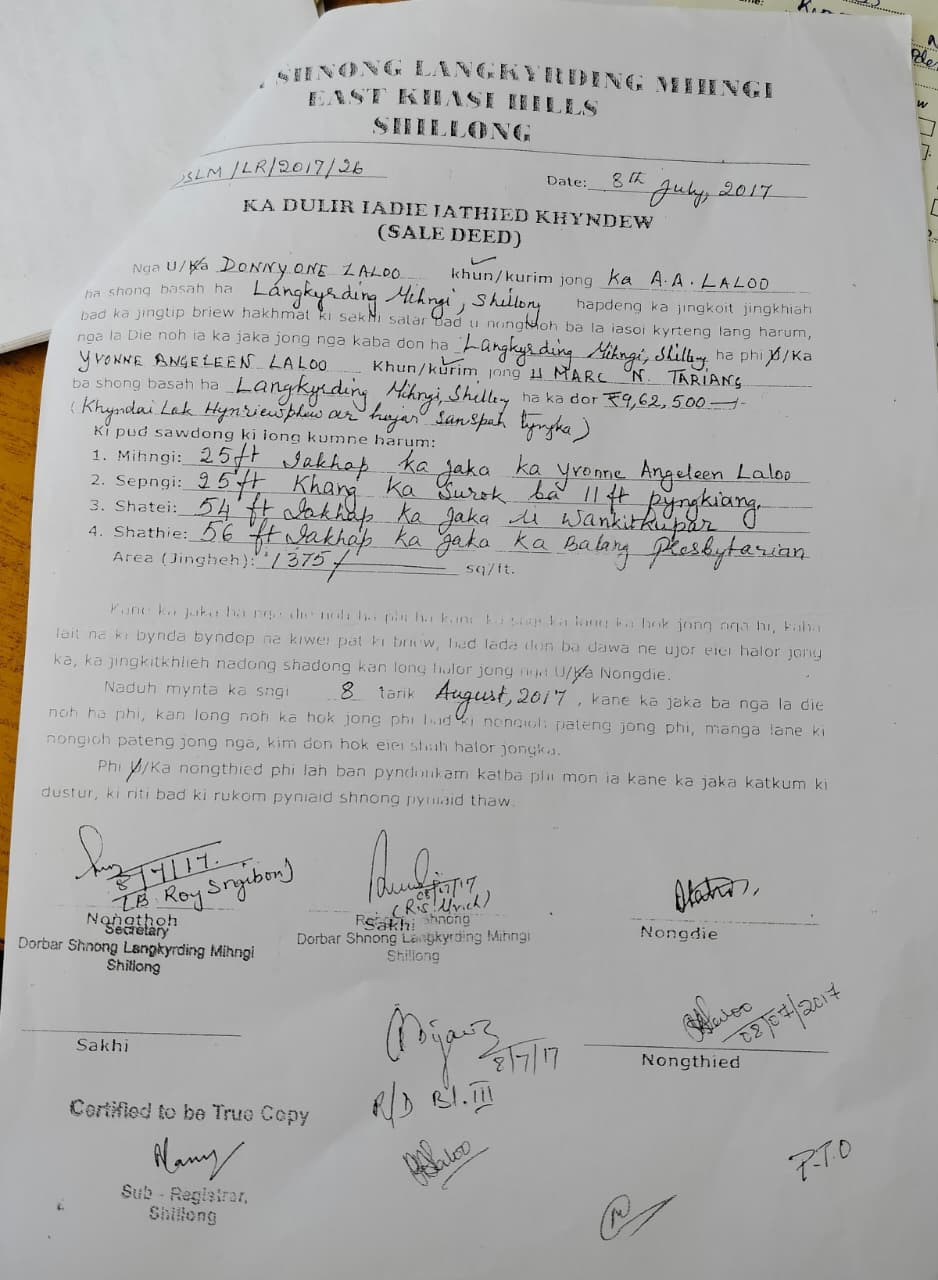 SHNONG LANGKYRDING MIHNGI
EAST KHASI HILLS
SHILLONG
SLM/LR/2017/26
Date: 8th July, 2017
KA DULIR IADIE IATHIED KHYNDEW
(SALE DEED)
Nga U/Ka DONNYONE LALOO khun/kurim jong Ka A.A. LALOO
ba shong basah ha Langkyrding Mihngi, Shillong hapdeng ka jingkoit jingkhiah
bad ka jingtip briew hakhmat ki sakhi salar bad u nongthoh ba la iasoi kyrteng lang harum,
nga la Die noh ia ka jaka jong nga kaba don ha Langkyrding Mihngi, Shillong ha phi U/Ka
YVONNE ANGELEEN LALOO Khun/kurim jong U MARC N. TARIANG
ba shong basah ha Langkyrding Mihngi, Shillong ha ka dor ₹9,62,500/-
(Khyndai Lak Hynriewphew ar hajar sanspah tyngka)
Ki pud sawdong ki long kumne harum:
1. Mihngi: 25ft Iakhap ka jaka ka Yvonne Angeleen Laloo
2. Sepngi: 25ft Khang ka Surok ba 11 ft pyngkiang.
3. Shatei: 54 ft Iakhap ka jaka u Wankitkupar
4. Shathie: 56 ft Iakhap ka jaka ka Balang Presbytarian
Area (Jingheh): 1375/ sq/ft.
Kane ka jaka ba nga die noh ha phi ha kane ka sngi ka long ka hok jong nga hi, kaba
lait na ki bynda byndop na kiwei pat ki briew, bad lada don ba dawa ne ujor eiei halor jong
ka, ka jingkitkhlieh nadong shadong kan long halor jong nga U/Ka Nongdie.
Naduh mynta ka sngi 8 tarik August, 2017, kane ka jaka ba nga la die
noh ha phi, kan long noh ka hok jong phi bad ki nongioh pateng jong phi, manga lane ki
nongioh pateng jong nga, kim don hok eiei shuh halor jongka.
Phi U/Ka nongthied phi lah ban pyndonkam katba phi mon ia kane ka jaka katkum ki
dustur, ki riti bad ki rukom pyniaid shnong pyniaid thaw.
8/7/17.
(B. Roy Sngibon)
Nongthoh
Secretary
Dorbar Shnong Langkyrding Mihngi
Shillong
08/07/17
Sakhi Shnong
Dorbar Shnong Langkyrding Mihngi
Shillong
Nongdie
Sakhi
8/7/17
R/D Bl. III
Laloo
08/07/2017
Nongthied
Certified to be True Copy
Sub - Registrar,
Shillong
Laloo
P.T.O